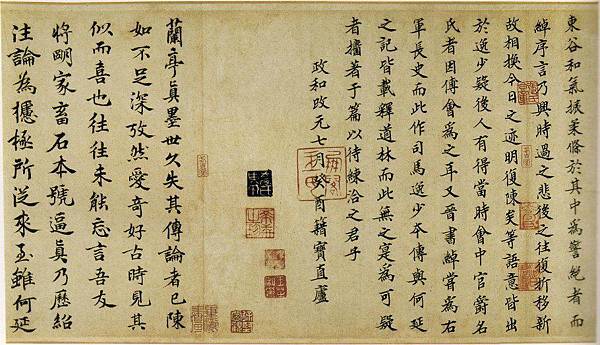 東谷和氣振柔條於其中為警絕者而
綽序言乃興時過之悲後之往復折移新
故相換今日之迹明復陳矣等語意皆出
於逸少疑後人有得當時會中官爵名
氏者因傅會為之耳又晉書綽嘗為右
軍長史而此作司馬逸少本傳與何延
之記皆載釋道林而此無之寔為可疑
者著于篇以待練洽之君子
政和改元七月癸酉籍寶直廬
蘭亭真墨世久失其傳論者已陳
如不足深孜然愛奇好古時見其
似而喜也往往未能忘言吾友
將明家畜石本號逼真乃歷紹
注論為攄極所從來至雖何延